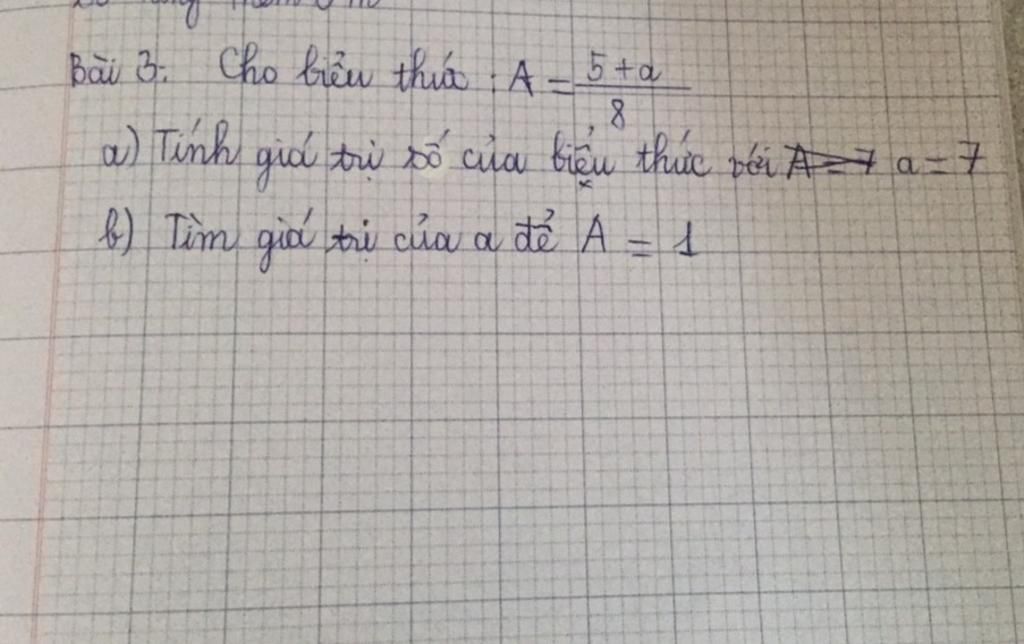 Bài 3: Cho biểu thức : A = \frac{5+a}{8}
a) Tính giá trị số của biểu thức với a = 7
b) Tìm giá trị của a để A = 1